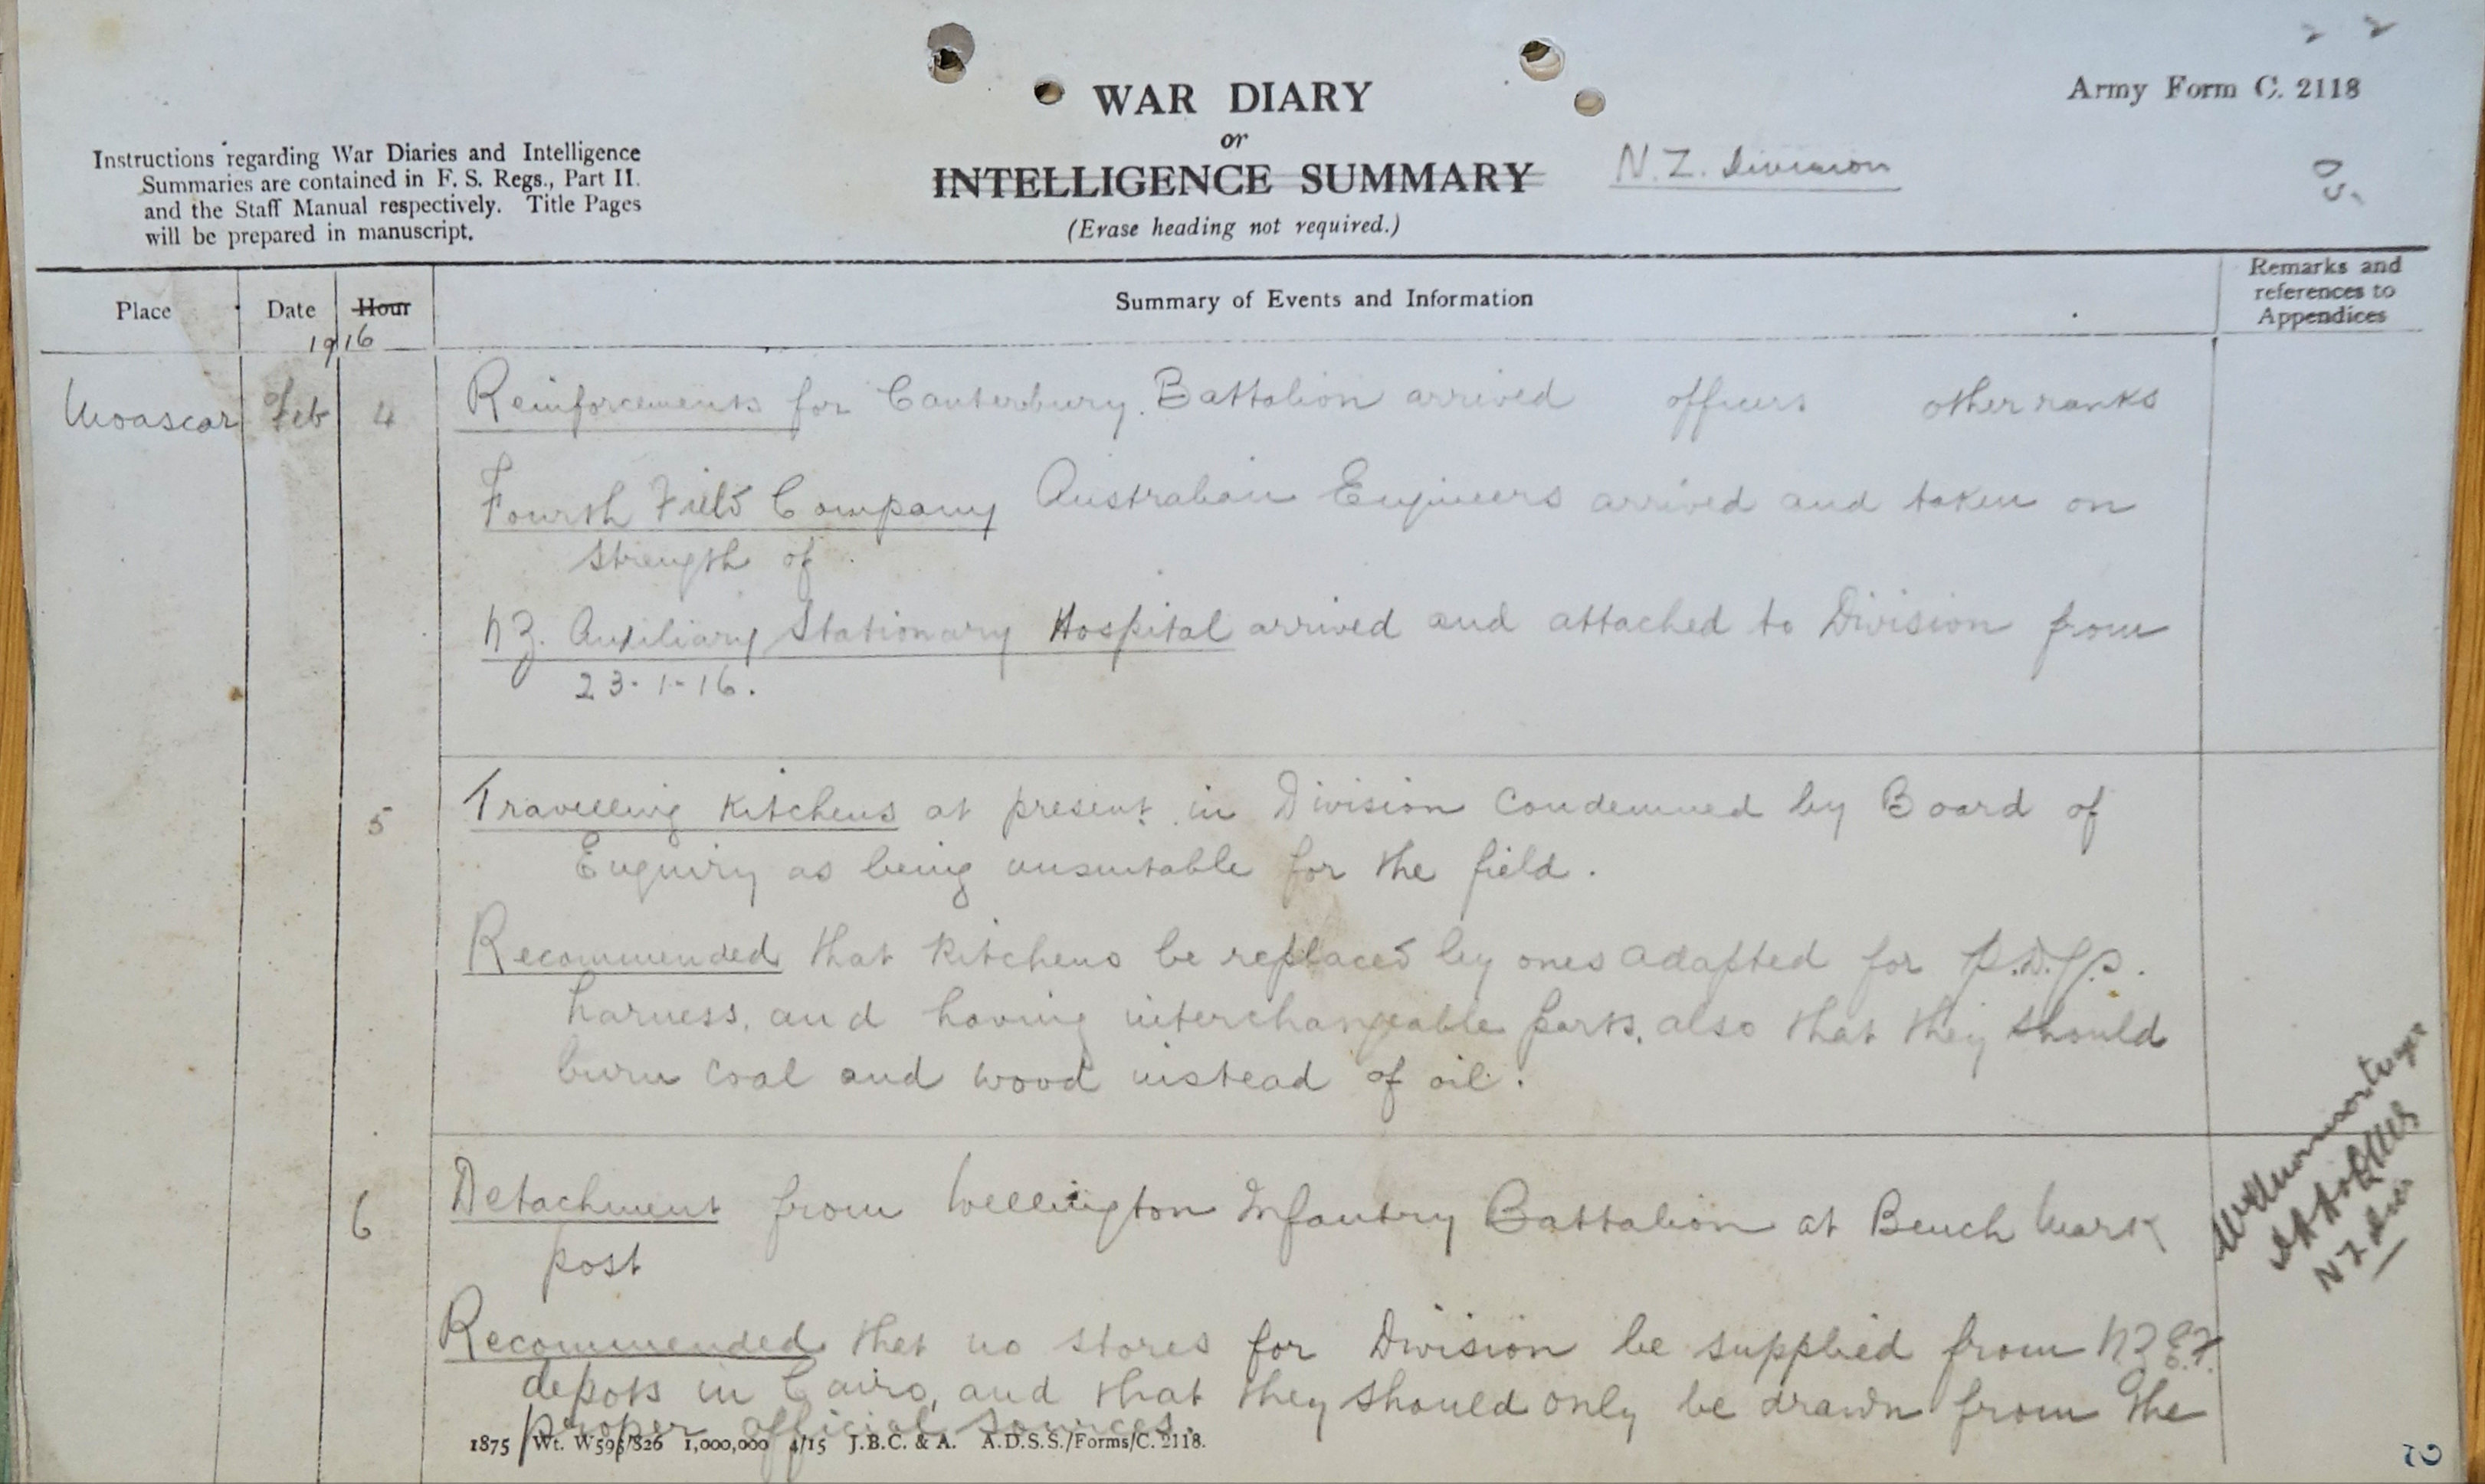 2 2
Army Form C. 2118
WAR DIARY
or
INTELLIGENCE SUMMARY
(Erase heading not required.)
N.Z. Division
Instructions regarding War Diaries and Intelligence
Summaries are contained in F. S. Regs., Part II.
and the Staff Manual respectively. Title Pages
will be prepared in manuscript.
Place Date Hour Summary of Events and Information Remarks and
references to
Appendices
1916
Moascar Feb 4 Reinforcements for Canterbury Battalion arrived officers other ranks
Fourth Field Company Australian Engineers arrived and taken on
strength of
NZ. Auxiliary Stationary Hospital arrived and attached to Division from
23-1-16.
5 Travelling Kitchens at present in Division condemned by Board of
Enquiry as being unsuitable for the field.
Recommended that Kitchens be replaced by ones adapted for
harness, and having interchangeable parts, also that they should
burn coal and wood instead of oil.
6 Detachment from Wellington Infantry Battalion at Bench Mark
post
Recommended that no stores for Division be supplied from NZEF
depots in Cairo, and that they should only be drawn from the
proper official sources.
NZ Div
1875 Wt. W593/826 1,000,000 4/15 J.B.C. & A. A.D.S.S./Forms/C. 2118.